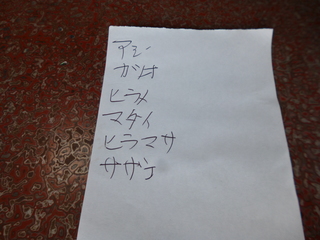 アジ
ヒラメ
マダイ
ヒラマサ
サザエ